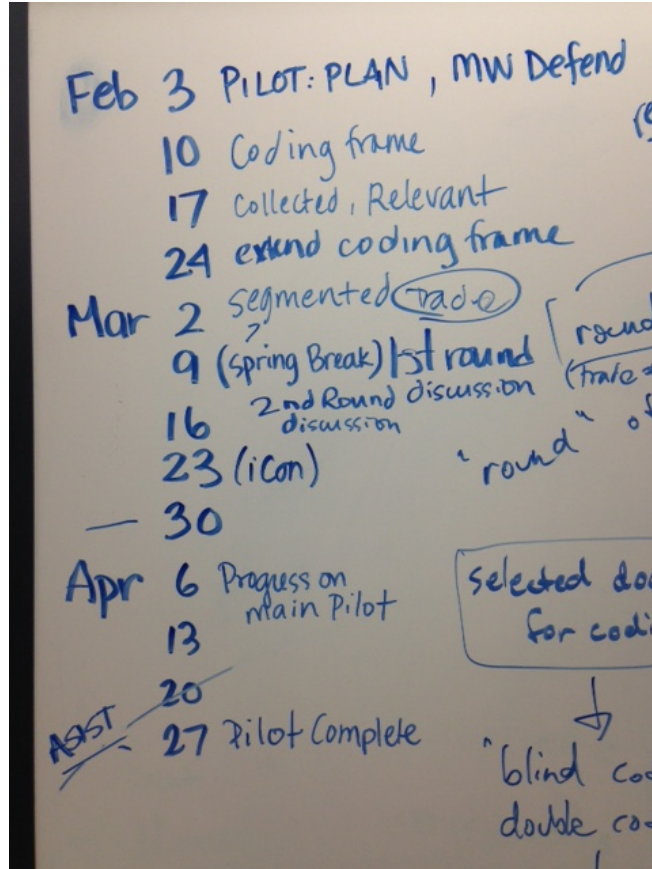 Feb 3 PILOT: PLAN, MW Defend
10 Coding frame
17 Collected, Relevant
24 extend coding frame
Mar 2 segmented trade
?
9 (Spring Break) 1st round discussion
16 2nd Round discussion
23 (iCon)
— 30
Apr 6 Progress on
main Pilot
13
20
ASIST
27 Pilot Complete
round
"round" of
selected
for
"blind
double